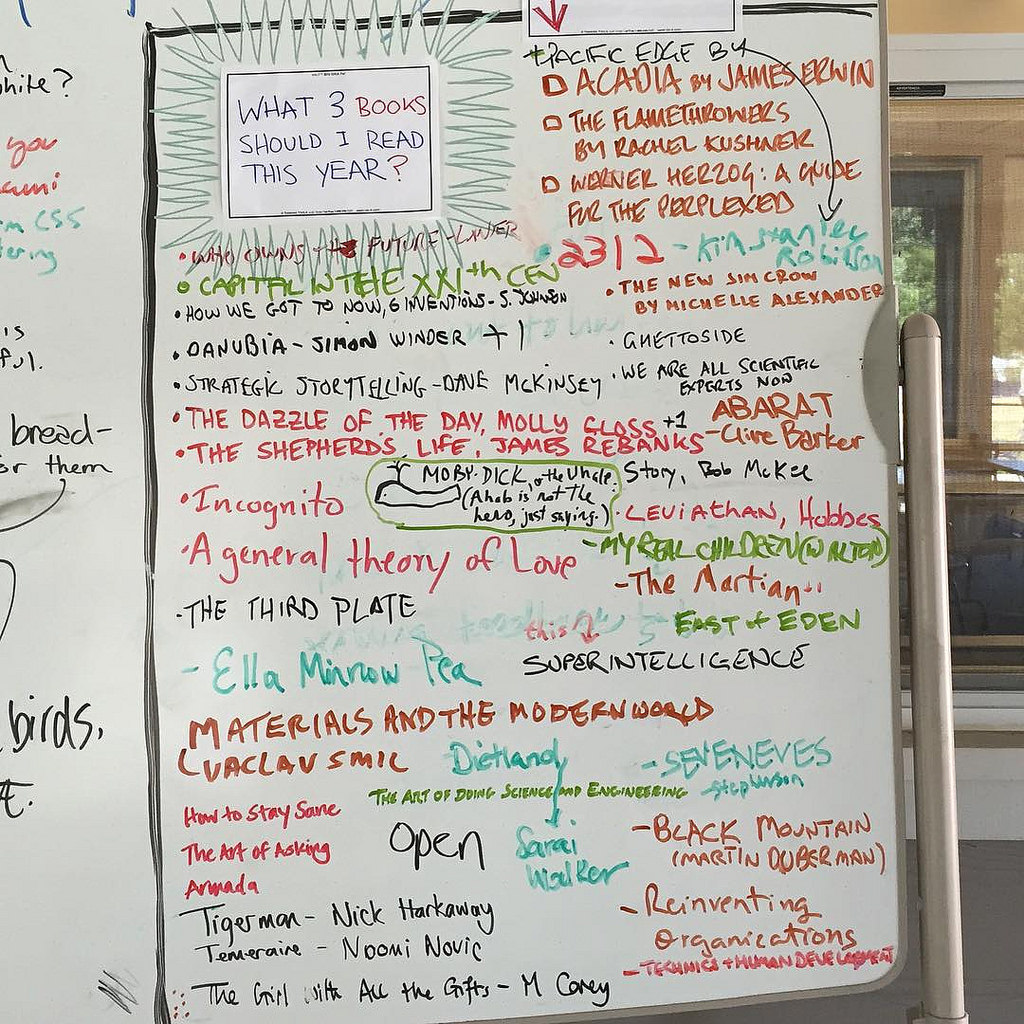 white?
you
m CSS
tering
is
ful.
bread-
or them
birds.
WHAT 3 BOOKS
SHOULD I READ
THIS YEAR?
*PACIFIC EDGE BY
ACADIA BY JAMES ERWIN
THE FLAMETHROWERS
BY RACHEL KUSHNER
WERNER HERZOG: A GUIDE
FOR THE PERPLEXED
• WHO OWNS THE FUTURE - LANIER
2312 - Kim Stanley
Robinson
• CAPITAL IN THE XXIth CEN
• THE NEW JIM CROW
BY MICHELLE ALEXANDER
• HOW WE GOT TO NOW, 6 INVENTIONS - S. JOHNSON
• DANUBIA - SIMON WINDER +1
• GHETTOSIDE
• STRATEGIC STORYTELLING - DAVE MCKINSEY
• WE ARE ALL SCIENTIFIC
EXPERTS NOW
• THE DAZZLE OF THE DAY, MOLLY GLOSS +1
ABARAT
- Clive Barker
• THE SHEPHERD'S LIFE, JAMES REBANKS
MOBY-DICK, or the Whale.
(Ahab is not the
hero, just saying.)
Story, Bob McKee
• Incognito
• LEVIATHAN, Hobbes
• A general theory of Love
- MY REAL CHILDREN (WALTON)
- The Martian
- THE THIRD PLATE
this
EAST of EDEN
- Ella Minnow Pea
SUPERINTELLIGENCE
MATERIALS AND THE MODERN WORLD
(VACLAV SMIL
Dietland
Sarai
Walker
- SEVENEVES
- Stephenson
THE ART OF DOING SCIENCE AND ENGINEERING
How to Stay Sane
The Art of Asking
Armada
Open
- BLACK MOUNTAIN
(MARTIN DUBERMAN)
Tigerman - Nick Harkaway
Temeraire - Noomi Novic
- Reinventing
Organizations
- TECHNICS + HUMAN DEVELOPMENT
The Girl with All the Gifts - M Carey